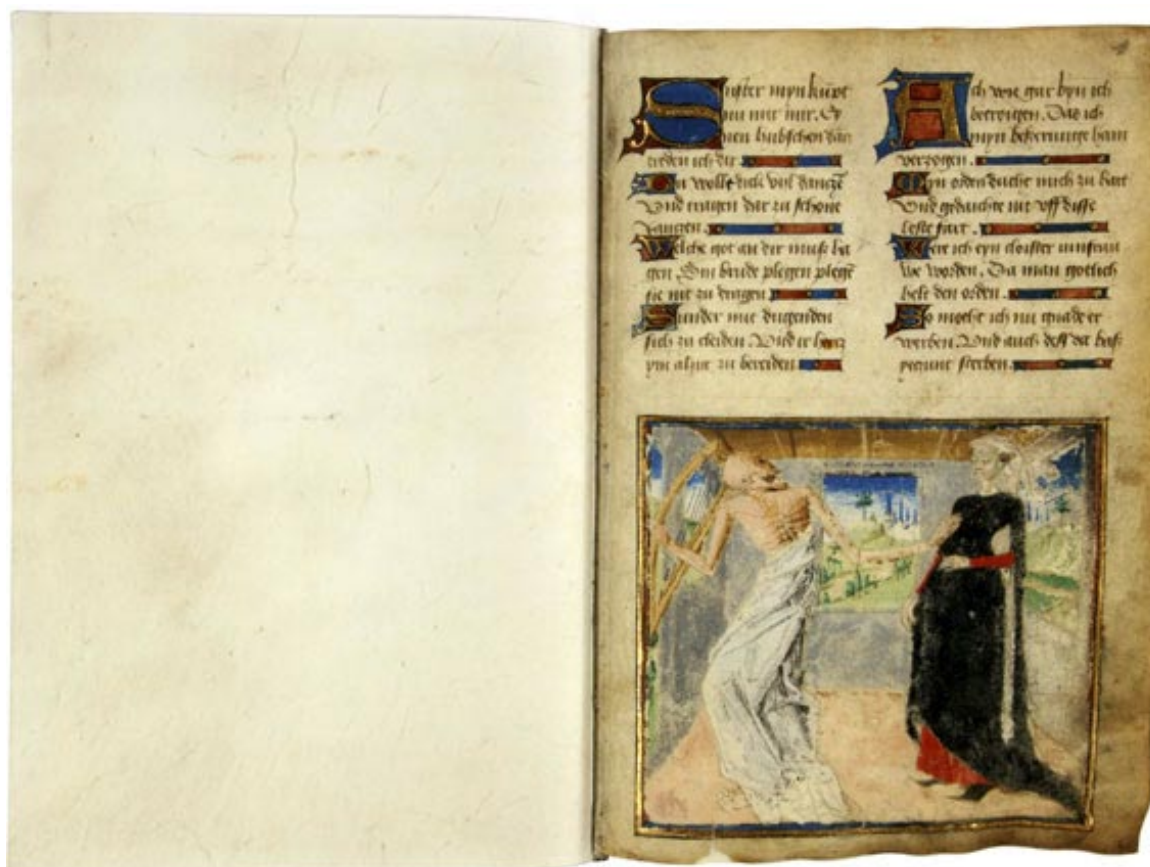 Suster myn kumpt
mit mir. Ey
nen hubschen dan
treden ich dir.
Ir wolt dich vyl dancze
Und tragen dar zu schone
rancten.
Welche got an dir muß ha
gen. Sin brude plegen plege
sie nit zu dragen
Sunder mit dugenden
sich zu cleiden. Und ir hercz
ym alzit zu bereiden
Ach wie gar byn ich
betrogen. Das ich
myn bekerunge hain
verzogen.
Myn orden ducht mich zu hart
Und gedachte nit uff disse
leste fart.
Were ich eyn cloister iunfrau
we worden. Da man gotlich
helt den orden.
So mocht ich nu gnade er
werben. Und auch dest bas
sterben.